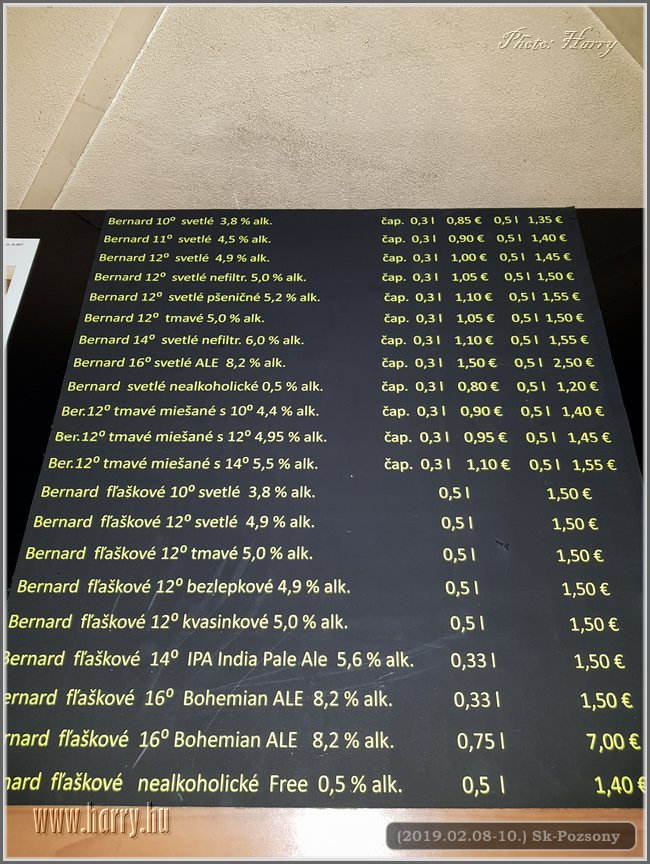 Photo: Harry
Bernard 10⁰ svetlé 3,8 % alk. čap. 0,3 l 0,85 € 0,5 l 1,35 €
Bernard 11⁰ svetlé 4,5 % alk. čap. 0,3 l 0,90 € 0,5 l 1,40 €
Bernard 12⁰ svetlé 4,9 % alk. čap. 0,3 l 1,00 € 0,5 l 1,45 €
Bernard 12⁰ svetlé nefiltr. 5,0 % alk. čap. 0,3 l 1,05 € 0,5 l 1,50 €
Bernard 12⁰ svetlé pšeničné 5,2 % alk. čap. 0,3 l 1,10 € 0,5 l 1,55 €
Bernard 12⁰ tmavé 5,0 % alk. čap. 0,3 l 1,05 € 0,5 l 1,50 €
Bernard 14⁰ svetlé nefiltr. 6,0 % alk. čap. 0,3 l 1,10 € 0,5 l 1,55 €
Bernard 16⁰ svetlé ALE 8,2 % alk. čap. 0,3 l 1,50 € 0,5 l 2,50 €
Bernard svetlé nealkoholické 0,5 % alk. čap. 0,3 l 0,80 € 0,5 l 1,20 €
Ber.12⁰ tmavé miešané s 10⁰ 4,4 % alk. čap. 0,3 l 0,90 € 0,5 l 1,40 €
Ber.12⁰ tmavé miešané s 12⁰ 4,95 % alk. čap. 0,3 l 0,95 € 0,5 l 1,45 €
Ber.12⁰ tmavé miešané s 14⁰ 5,5 % alk. čap. 0,3 l 1,10 € 0,5 l 1,55 €
Bernard fľaškové 10⁰ svetlé 3,8 % alk. 0,5 l 1,50 €
Bernard fľaškové 12⁰ svetlé 4,9 % alk. 0,5 l 1,50 €
Bernard fľaškové 12⁰ tmavé 5,0 % alk. 0,5 l 1,50 €
Bernard fľaškové 12⁰ bezlepkové 4,9 % alk. 0,5 l 1,50 €
Bernard fľaškové 12⁰ kvasinkové 5,0 % alk. 0,5 l 1,50 €
Bernard fľaškové 14⁰ IPA India Pale Ale 5,6 % alk. 0,33 l 1,50 €
ernard fľaškové 16⁰ Bohemian ALE 8,2 % alk. 0,33 l 1,50 €
rnard fľaškové 16⁰ Bohemian ALE 8,2 % alk. 0,75 l 7,00 €
nard fľaškové nealkoholické Free 0,5 % alk. 0,5 l 1,40 €
www.harry.hu
(2019.02.08-10.) Sk-Pozsony